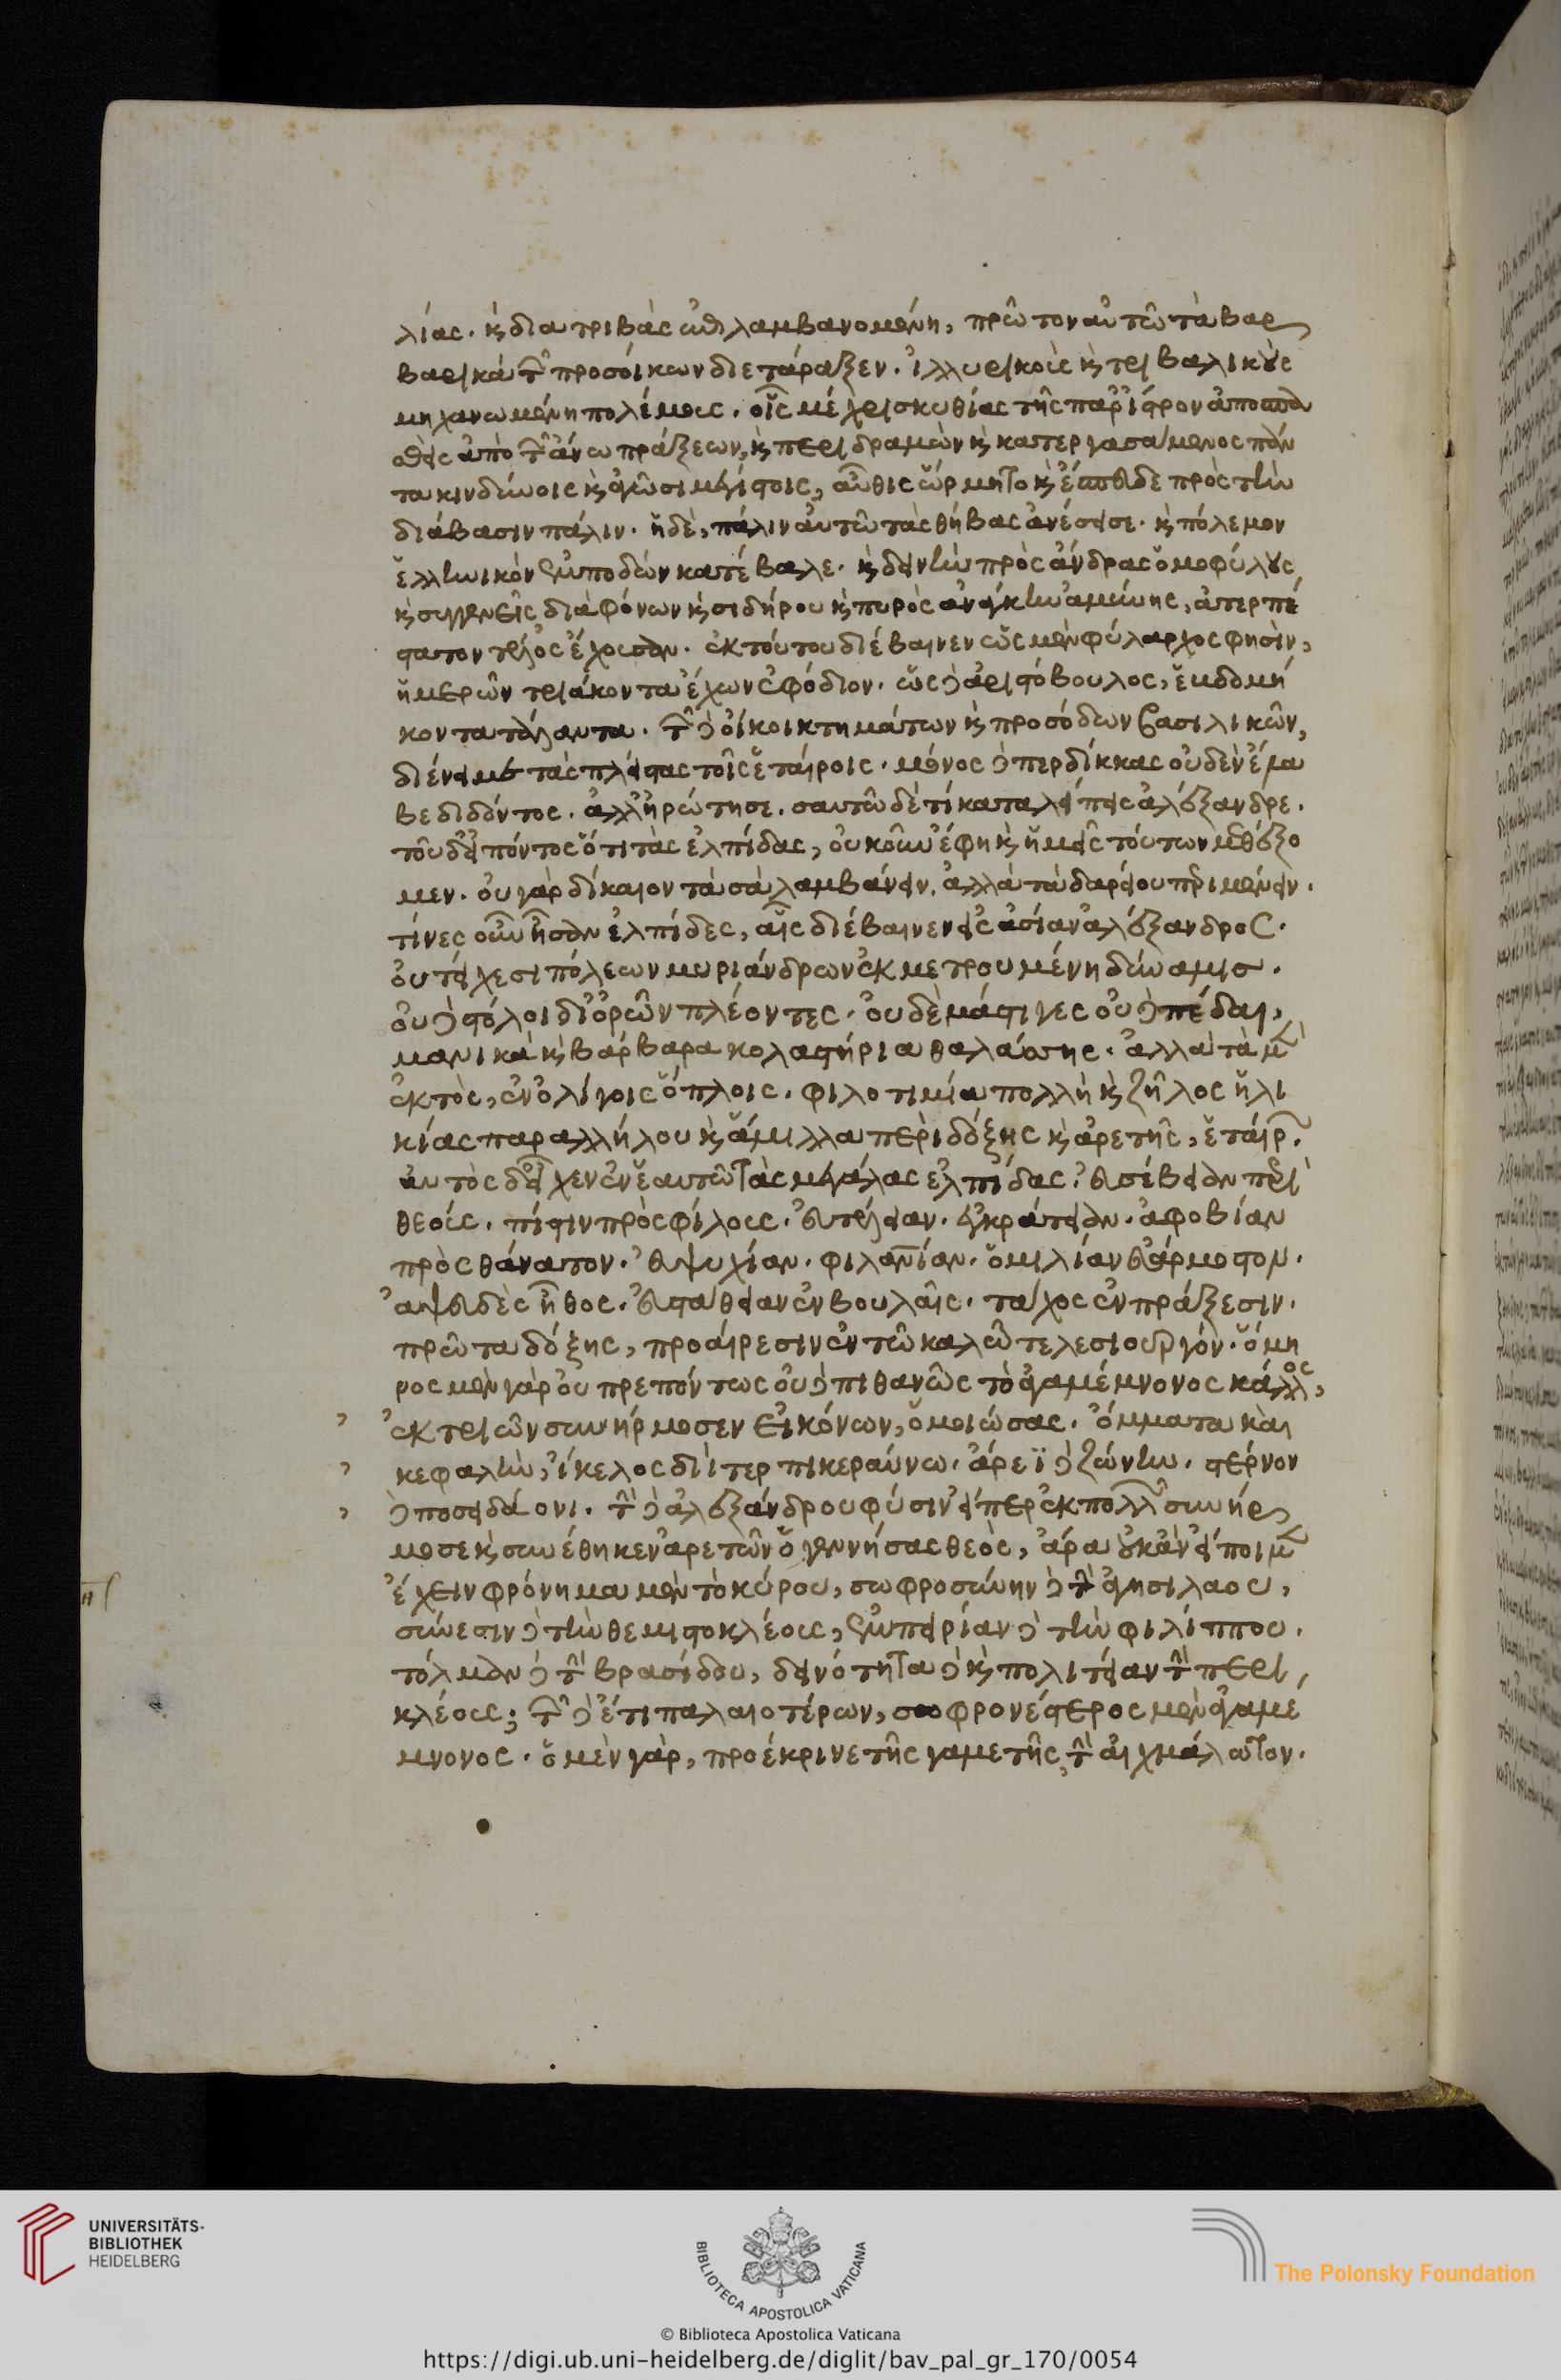 λίας. καὶ διατριβὰς ἐπιλαμβανομένη, πρῶτον αὐτῶ τὰ βαρ
βαρικὰ τῶν προσοίκων διετάραξεν. ἰλλυρικοὺς καὶ τριβαλικοὺς
μηχανωμένη πολέμους. οἷς μέχρι σκυθίας τῆς παρ' ἴστρον ἀποσπα
σθεὶς ἀπὸ τῶν ἄνω πράξεων, καὶ περιδραμὼν καὶ κατεργασάμενος πάν
τα κινδύνοις καὶ ἀγῶσι μεγίστοις, αὖθις ὥρμητο καὶ ἔσπευδε πρὸς τὴν
διάβασιν πάλιν. ἡ δὲ, πάλιν αὐτῶ τὰς θήβας ἀνέσεισε. καὶ πόλεμον
ἑλληνικὸν ἐμποδὼν κατέβαλε. καὶ δεινὴν πρὸς ἄνδρας ὁμοφύλους
καὶ συγγενεῖς διὰ φόνων καὶ σιδήρου καὶ πυρὸς ἀνάγκην ἀμύνης, ἀτερπέ
στατον τέλος ἔχουσαν. ἐκ τούτου διέβαινεν ὡς μὲν φύλαρχος φησὶν,
ἡμερῶν τριάκοντα ἔχων ἐφόδιον. ὡς δὲ ἀριστόβουλος, ἑβδομή
κοντα τάλαντα. τῶν δὲ οἴκοι κτημάτων καὶ προσόδων βασιλικῶν,
διένειμε τὰς πλείστας τοῖς ἑταίροις. μόνος δὲ περδίκκας οὐδὲν ἔλα
βε διδόντος. ἀλλ' ἠρώτησε. σαυτῶ δὲ τί καταλείπεις ἀλέξανδρε.
τοῦ δ' εἰπόντος ὅτι τὰς ἐλπίδας, οὐκοῦν ἔφη καὶ ἡμεῖς τούτων μεθέξο
μεν. οὐ γὰρ δίκαιον τὰ σὰ λαμβάνειν. ἀλλὰ τὰ δαρείου περιμένειν.
τίνες οὖν ἦσαν ἐλπίδες, αἷς διέβαινεν εἰς ἀσίαν ἀλέξανδρος.
οὐ τείχεσι πόλεων μυριάνδρων ἐκμετρουμένη δύναμις.
οὐ δὲ στόλοι δι' ὀρῶν πλέοντες. οὐδὲ μάστιγες οὐ δὲ πέδαι,
μανικὰ καὶ βάρβαρα κολαστήρια θαλάσσης. ἀλλὰ τὰ μὲν
ἐκτὸς, ἐν ὀλίγοις ὅπλοις. φιλοτιμία πολλὴ καὶ ζῆλος ἡλι
κίας παραλλήλου καὶ ἅμιλλα περὶ δόξης καὶ ἀρετῆς, ἑταίρων.
αὐτὸς δ' εἶχεν ἐν ἑαυτῶ τὰς μεγάλας ἐλπίδας. εὐσέβειαν περὶ
θεούς. πίστιν πρὸς φίλους. εὐτέλειαν. ἐγκράτειαν. ἀφοβίαν
πρὸς θάνατον. εὐψυχίαν. φιλανθρωπίαν. ὁμιλίαν εὐάρμοστον.
ἀψευδὲς ἦθος. εὐστάθειαν ἐν βουλαῖς. τάχος ἐν πράξεσιν.
ἔρωτα δόξης, προαίρεσιν ἐν τῶ καλῶ τελεσιουργόν. ὅμη
ρος μὲν γὰρ οὐ πρεπόντως οὐ δὲ πιθανῶς τὸ ἀγαμέμνονος κάλλος,
ἐκ τριῶν συνήρμοσεν εἰκόνων, ὁμοιώσας. ὄμματα καὶ
κεφαλὴν, ἴκελος διῒ τερπικεραύνω. ἄρεϊ δὲ ζώνην. στέρνον
δὲ ποσειδάονι. τὴν δὲ ἀλεξάνδρου φύσιν εἴπερ ἐκ πολλῶν συνήρ
μοσε καὶ συνέθηκεν ἀρετῶν ὁ γεννήσας θεὸς, ἆρα οὐκ ἂν εἴποιμεν
ἔχειν φρόνημα μὲν τὸ κύρου, σωφροσύνην δὲ τὴν ἀγησιλάου,
σύνεσιν δὲ τὴν θεμιστοκλέους, ἐμπειρίαν δὲ τὴν φιλίππου.
τόλμαν δὲ τὴν βρασίδου, δεινότητα δὲ καὶ πολιτείαν τὴν περι
κλέους; τῶν δὲ ἔτι παλαιοτέρων, σωφρονέστερος μὲν ἀγαμέ
μνονος. ὁ μὲν γὰρ, προέκρινε τῆς γαμετῆς, τὴν αἰχμάλωτον.
UNIVERSITÄTS-
BIBLIOTHEK
HEIDELBERG
BIBLIOTECA APOSTOLICA VATICANA
The Polonsky Foundation
© Biblioteca Apostolica Vaticana
https://digi.ub.uni-heidelberg.de/diglit/bav_pal_gr_170/0054